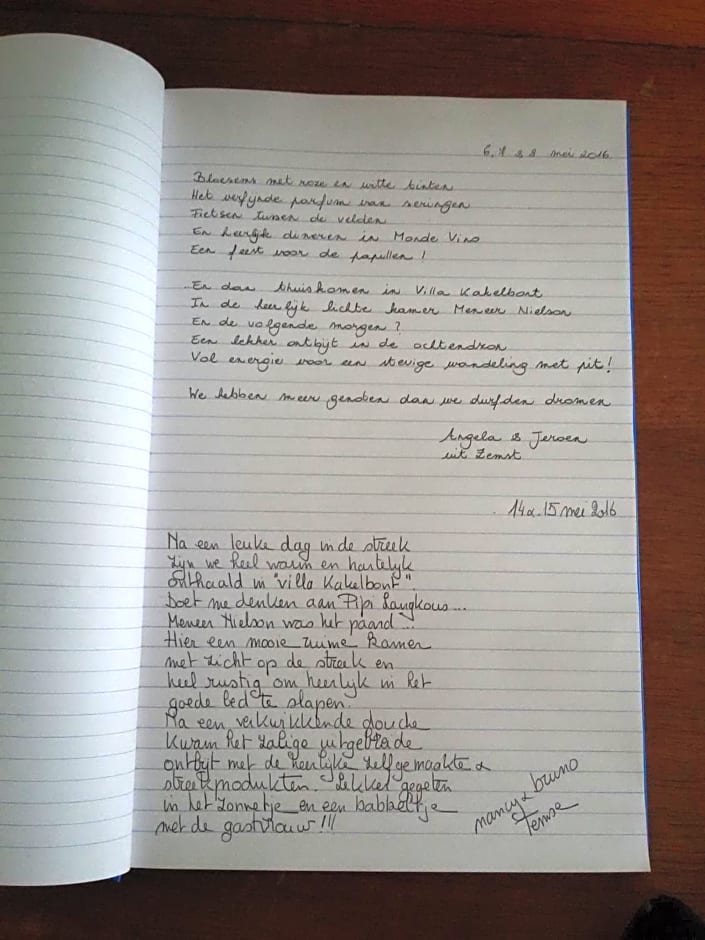 6, 7 & 8 mei 2016
Bloesems met roze en witte tinten
Het verfijnde parfum van seringen
Fietsen tussen de velden
En heerlijk dineren in Monde Vino
Een feest voor de papillen!
En dan thuiskomen in Villa Kakelbont
In de heerlijk lichte kamer Meneer Nielson
En de volgende morgen?
Een lekker ontbijt in de ochtendzon
Vol energie voor een stevige wandeling met pit!
We hebben meer genoten dan we durfden dromen
Angela & Jeroen
uit Zemst
14 & 15 mei 2016
Na een leuke dag in de streek
zijn we heel warm en hartelijk
onthaald in "villa Kakelbont".
Doet me denken aan Pipi Langkous...
Meneer Nielson was het paard...
Hier een mooie ruime kamer
met zicht op de streek en
heel rustig om heerlijk in het
goede bed te slapen.
Na een verkwikkende douche
kwam het zalige uitgebreide
ontbijt met de heerlijke zelfgemaakte &
streekprodukten. Lekker gegeten
in het zonnetje en een babbeltje
met de gastvrouw!!!
nancy & bruno
Temse